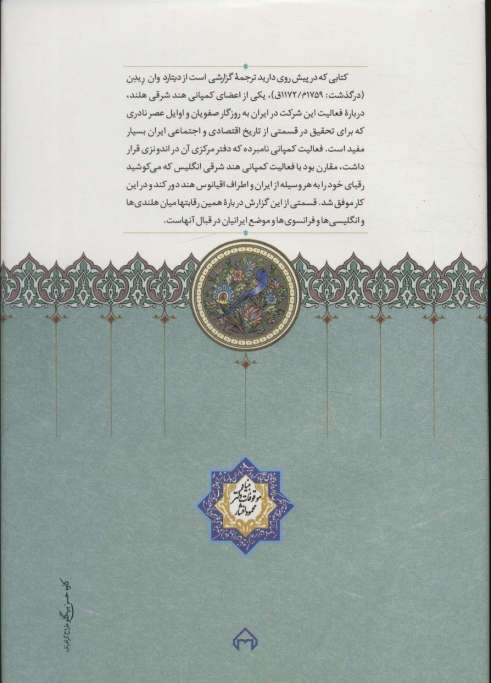 کتابی که در پیش روی دارید ترجمهٔ گزارشی است از دیتارد وان ریدبن
(درگذشت: ۱۷۵۹م/۱۱۷۲ق)، یکی از اعضای کمپانی هند شرقی هلند،
دربارهٔ فعالیت این شرکت در ایران به روزگار صفویان و اوایل عصر نادری
که برای تحقیق در قسمتی از تاریخ اقتصادی و اجتماعی ایران بسیار
مفید است. فعالیت کمپانی نامبرده که دفتر مرکزی آن در اندونزی قرار
داشت، مقارن بود با فعالیت کمپانی هند شرقی انگلیس که می‌کوشید
رقبای خود را به هر وسیله از ایران و اطراف اقیانوس هند دور کند و در این
کار موفق شد. قسمتی از این گزارش دربارهٔ همین رقابتها میان هلندی‌ها
و انگلیسی‌ها و فرانسوی‌ها و موضع ایرانیان در قبال آنهاست.
بنیاد
موقوفات دکتر
محمود افشار